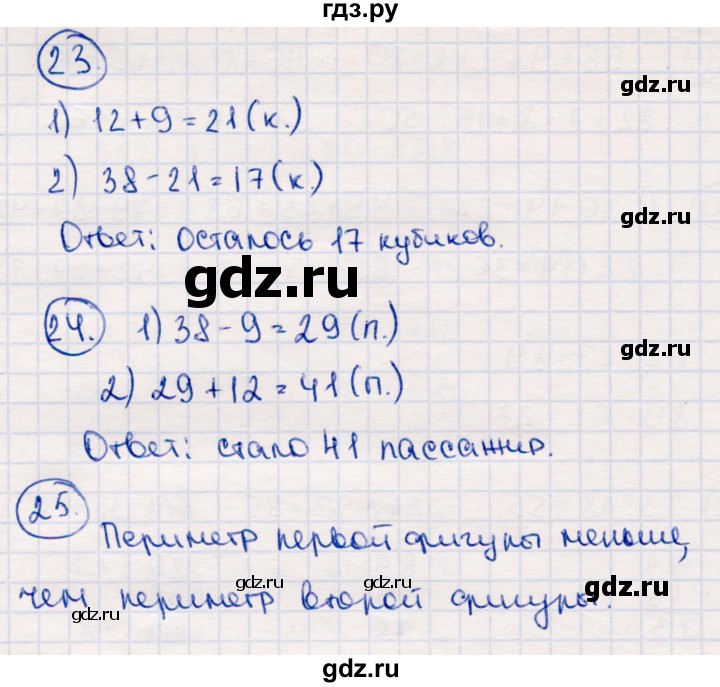 гдз.ру
23.
gdz.ru
1) 12+9=21(к.)
2) 38-21=17(к.)
gdz.ru
Ответ: осталось 17 кубиков.
gdz.ru
24. 1) 38-9=29(п.)
gdz.ru
2) 29+12=41(п.)
Ответ: стало 41 пассажир.
gdz.ru
25.
Периметр первой фигуры меньше,
gdz.ru gdz.ru gdz.ru
чем периметр второй фигуры.
gdz.ru